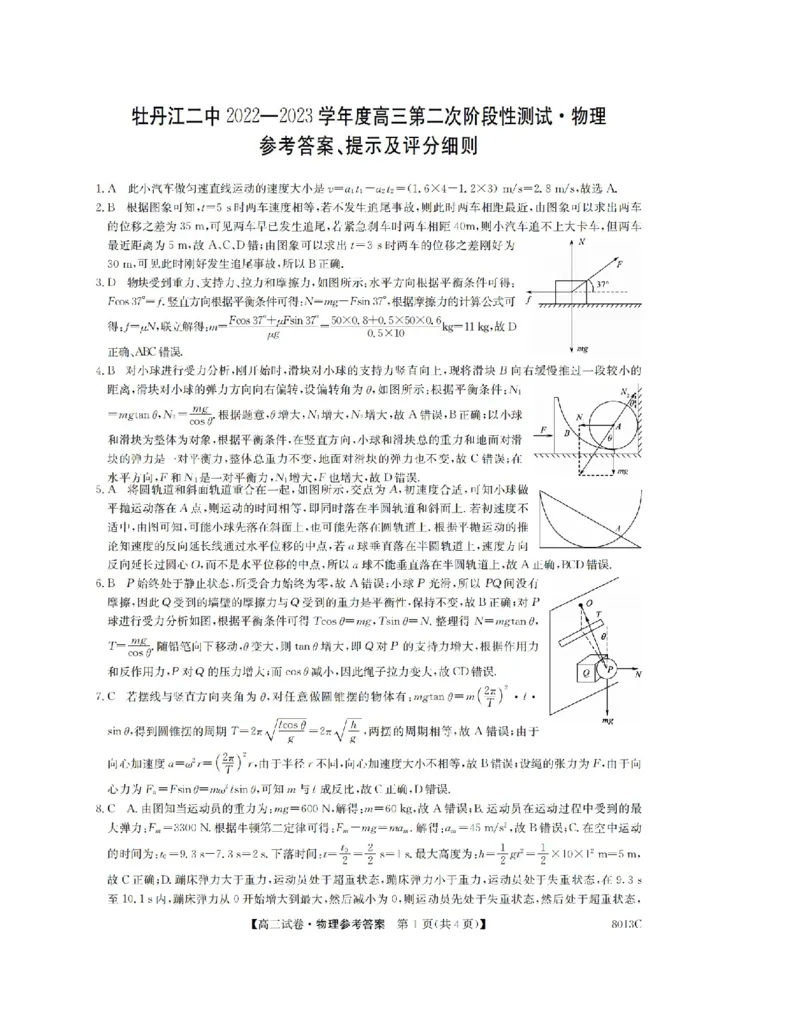 牡丹江二中 2022—2023 学年度高三第二次阶段性测试·物理
参考答案、提示及评分细则
1. A 此小汽车做匀速直线运动的速度大小是 v=a₁t₁-a₂t₂=(1.6×4-1.2×3) m/s=2.8 m/s,故选 A.
2. B 根据图象可知,t=5 s时两车速度相等,若不发生追尾事故,则此时两车相距最近,由图象可以求出两车
的位移之差为 35 m,可见两车早已发生追尾,若紧急刹车时两车相距 40m,则小汽车追不上大卡车,但两车
最近距离为 5 m,故 A、C、D 错;由图象可以求出 t=3 s 时两车的位移之差刚好为
30 m,可见此时刚好发生追尾事故,所以 B 正确.
3. D 物块受到重力、支持力、拉力和摩擦力,如图所示;水平方向根据平衡条件可得:
Fcos 37°=f.竖直方向根据平衡条件可得:N=mg-Fsin 37°,根据摩擦力的计算公式可
得:f=μN,联立解得:m=(Fcos 37°+μFsin 37°)/(μg)=(50×0.8+0.5×50×0.6)/(0.5×10) kg=11 kg,故 D
正确、ABC 错误.
N
F
37°
f
mg
4. B 对小球进行受力分析,刚开始时,滑块对小球的支持力竖直向上,现将滑块 B 向右缓慢推过一段较小的
距离,滑块对小球的弹力方向向右偏转,设偏转角为 θ,如图所示:根据平衡条件:N₁
=mgtan θ,N₂=mg/cos θ,根据题意,θ增大,N₁增大,N₂增大,故 A 错误,B正确;以小球
和滑块为整体为对象,根据平衡条件,在竖直方向,小球和滑块总的重力和地面对滑
块的弹力是一对平衡力,整体总重力不变,地面对滑块的弹力也不变,故 C 错误;在
水平方向,F 和 N₁是一对平衡力,N₁增大,F 也增大,故 D 错误.
N₂
N₁
A
F
B
θ
mg
5. A 将圆轨道和斜面轨道重合在一起,如图所示,交点为 A,初速度合适,可知小球做
平抛运动落在 A 点,则运动的时间相等,即同时落在半圆轨道和斜面上.若初速度不
适中,由图可知,可能小球先落在斜面上,也可能先落在圆轨道上.根据平抛运动的推
论知速度的反向延长线通过水平位移的中点,若 a 球垂直落在半圆轨道上,速度方向
反向延长过圆心 O,而不是水平位移的中点,所以 a 球不能垂直落在半圆轨道上,故 A 正确,BCD 错误.
A
6. B P 始终处于静止状态,所受合力始终为零,故 A 错误;小球 P 光滑,所以 PQ 间没有
摩擦,因此 Q 受到的墙壁的摩擦力与 Q 受到的重力是平衡性,保持不变,故 B 正确;对 P
球进行受力分析如图,根据平衡条件可得 Tcos θ=mg,Tsin θ=N.整理得 N=mgtan θ,
T=mg/cos θ,随铅笔向下移动,θ变大,则 tan θ增大,即 Q 对 P 的支持力增大,根据作用力
和反作用力,P 对 Q 的压力增大;而 cos θ减小,因此绳子拉力变大,故 CD 错误.
O
T
θ
Q
P
N
mg
7. C 若摆线与竖直方向夹角为 θ,对任意做圆锥摆的物体有:mgtan θ=m(2π/T)²·l·
sin θ,得到圆锥摆的周期 T=2π√(lcos θ/g)=2π√(h/g),两摆的周期相等,故 A 错误;由于
向心加速度 a=ω²r=(2π/T)²r,由于半径 r 不同,向心加速度大小不相等,故 B 错误;设绳的张力为 F,由于向
心力为 Fₙ=Fsin θ=mω²lsin θ,可知 m 与 l 成反比,故 C 正确,D 错误.
8. C A.由图知当运动员的重力为:mg=600 N,解得:m=60 kg,故 A 错误;B.运动员在运动过程中受到的最
大弹力:Fₘ=3300 N.根据牛顿第二定律可得:Fₘ-mg=maₘ.解得:aₘ=45 m/s²,故 B 错误;C.在空中运动
的时间为:t₀=9.3 s-7.3 s=2 s.下落时间:t=t₀/2=2/2 s=1 s.最大高度为:h=1/2gt²=1/2×10×1² m=5 m,
故 C 正确;D.蹦床弹力大于重力,运动员处于超重状态,蹦床弹力小于重力,运动员处于失重状态,在 9.3 s
至 10.1 s内,蹦床弹力从 0 开始增大到最大,然后减小为 0,则运动员先处于失重状态,然后处于超重状态,
【高三试卷·物理参考答案 第 1 页(共 4 页)】 8013C